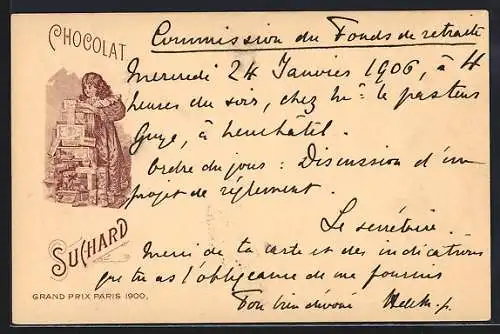 CHOCOLAT
Commission du Fonds de retraite
Mercredi 24 Janvier 1906, à 4
heures du soir, chez Mr. le pasteur
Guye, à Neuchâtel.
Ordre du jour : Discussion d'un
projet de règlement.
Le secrétaire.
Merci de ta carte et des indications
que tu as l'obligeance de me fournir
Ton bien dévoué
SUCHARD
GRAND PRIX PARIS 1900,